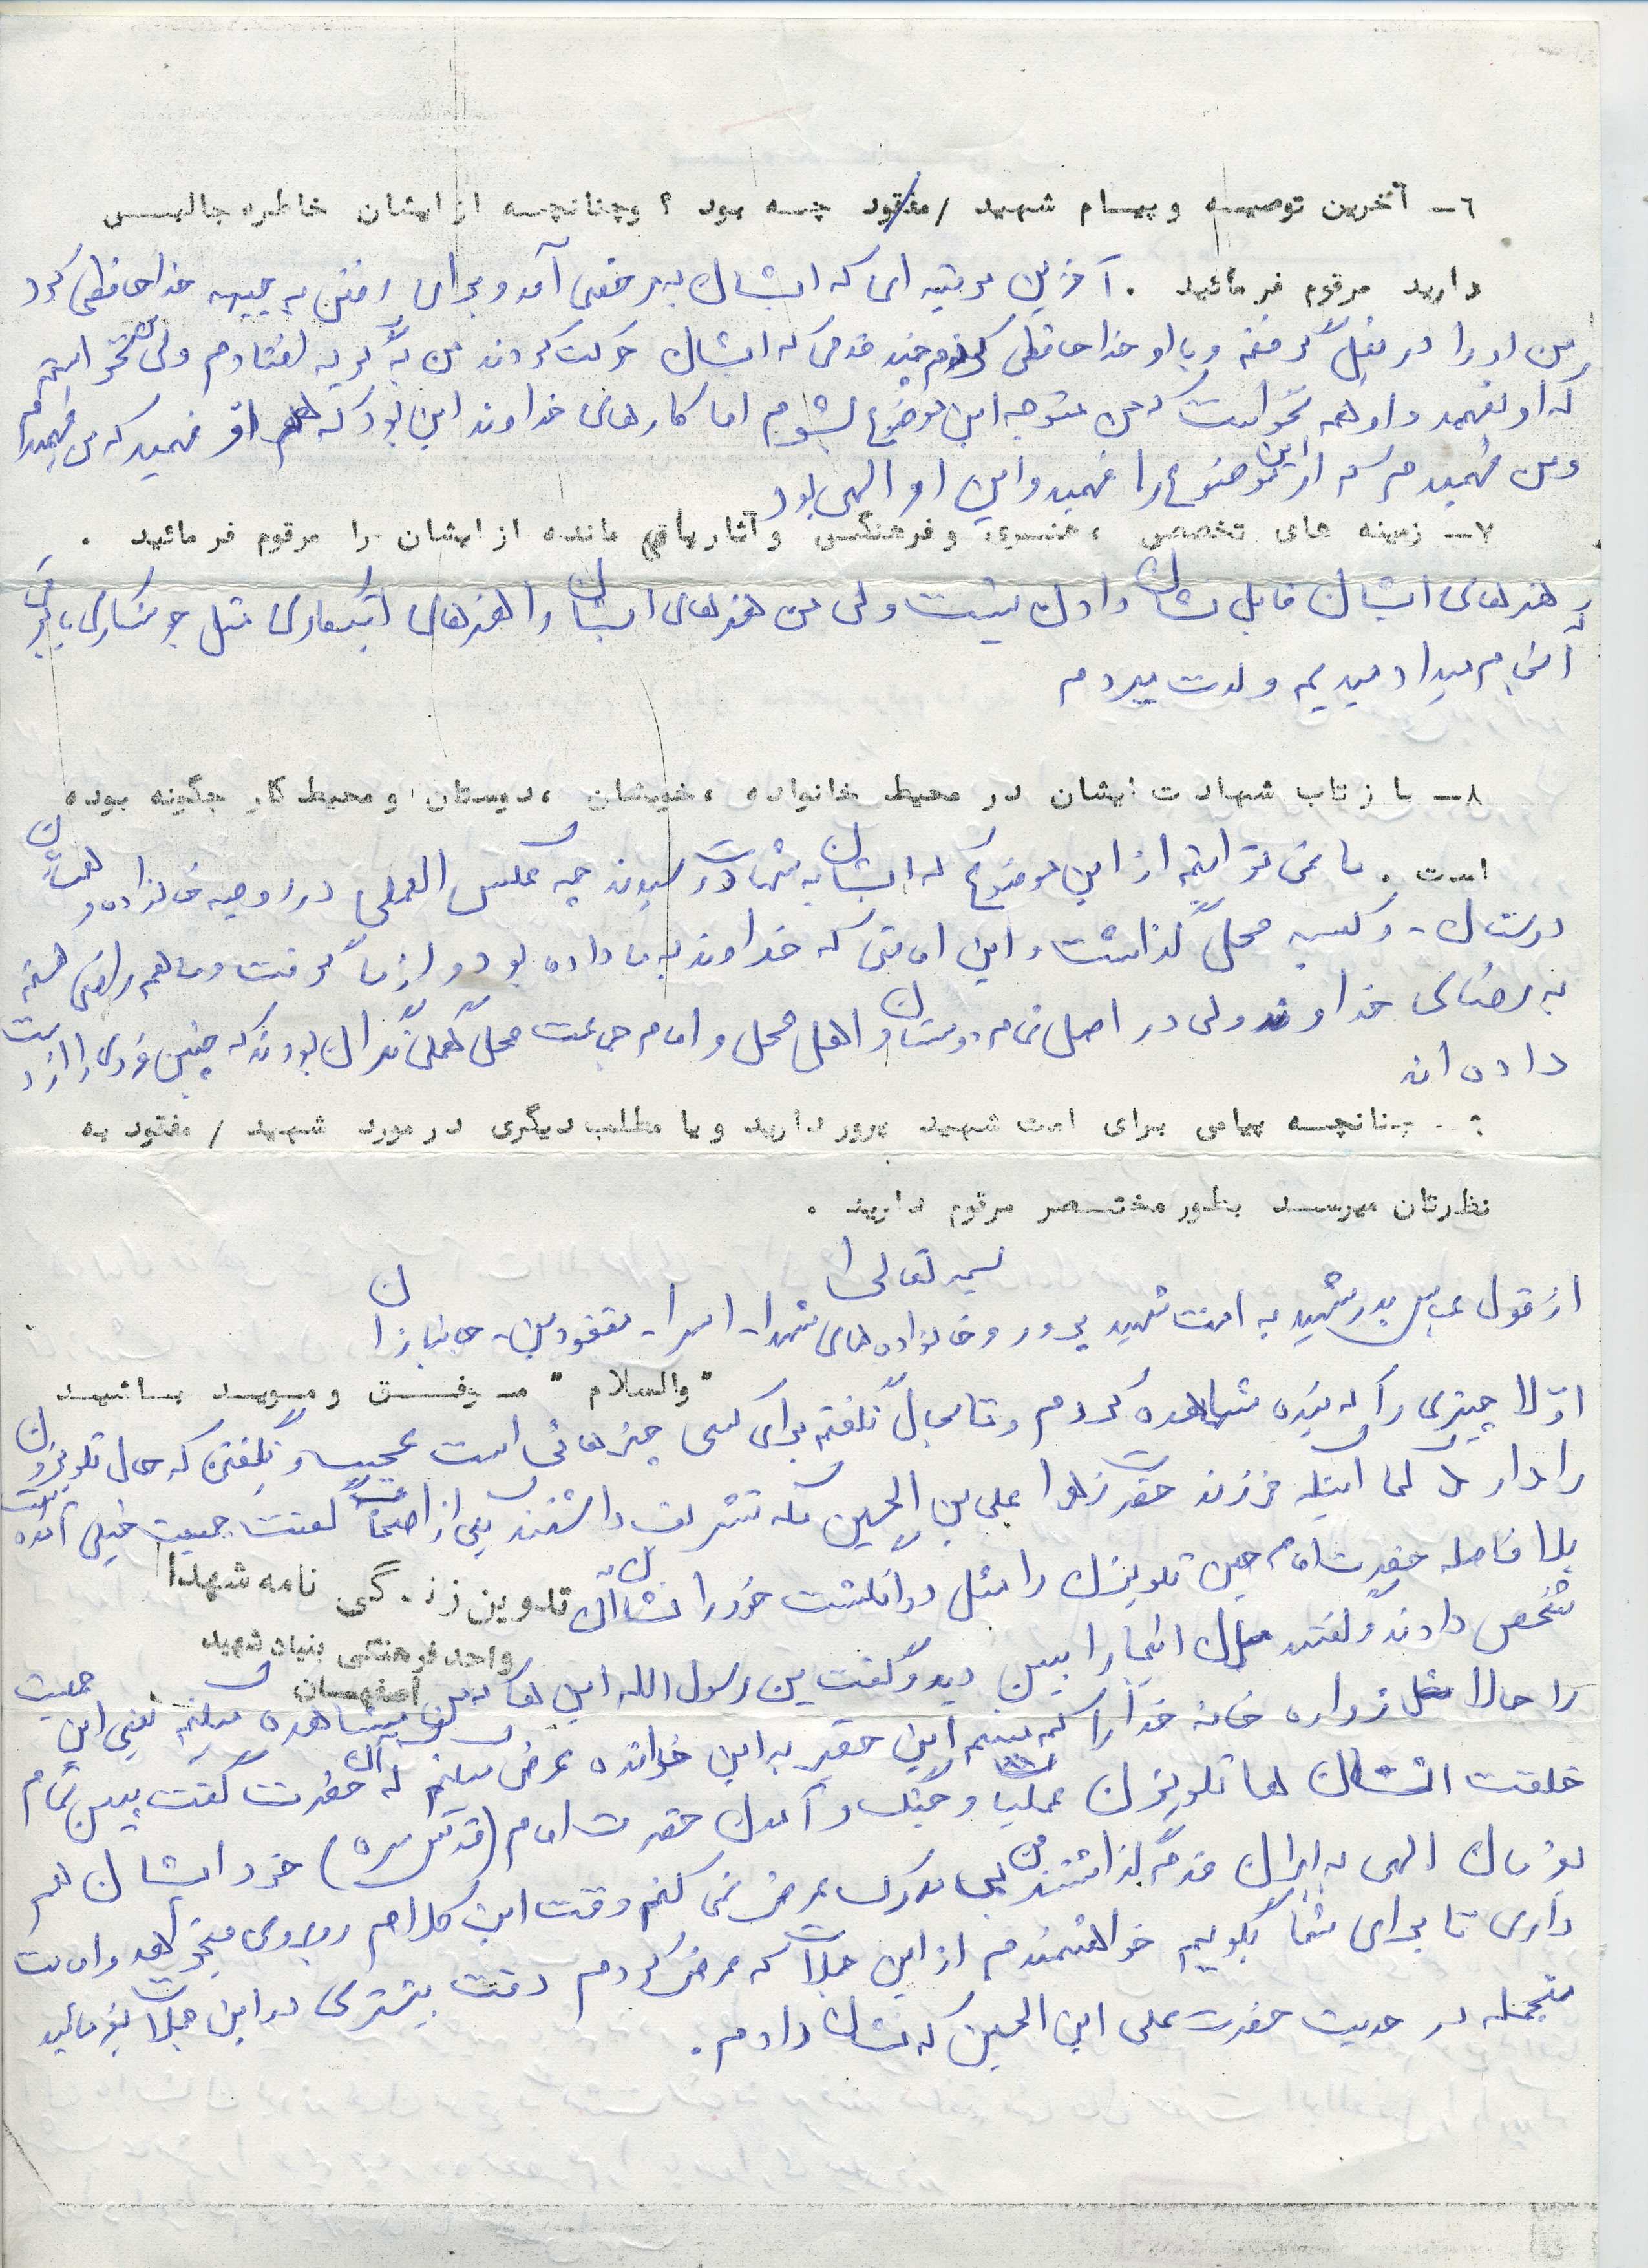 ٦ـ آخرین توصیه و پیام شهید /مفقود چه بود ؟ وچنانچه از ایشان خاطره جالبی
دارید مرقوم فرمائید . آخرین مرتبه ای که ایشان به مرخصی آمد و برای رفتن به جبهه خداحافظی کرد
من او را در بغل گرفتم و با او خداحافظی کردم چند قدمی که ایشان حرکت کردند من به گریه افتادم ولی نمی خواستم
که او بفهمد و او هم نمی خواست که من متوجه این موضوع بشوم اما کارهای خداوند این بود که هم او فهمید که من فهمیدم
ومن فهمیدم که او این موضوع را فهمید و این امر الهی بود
٧ـ زمینه های تخصصی ، هنری و فرهنگی و آثار باقی مانده از ایشان را مرقوم فرمائید .
هنرهای ایشان قابل نشان دادن نیست ولی من هنرهای ایشان را هنرهای ابتکاری مثل جوشکاری با برق
انجام میداد میدیم و لذت میبردم
٨ـ بازتاب شهادت ایشان در محیط خانواده ، خویشان ، دوستان و محیط کار چگونه بوده
است . ما نمی توانیم از این موضوع که ایشان به شهادت رسیدند چه عکس العملی در روحیه خانواده و
دوستان - و کسبه محل گذاشت و این امانتی که خداوند به ما داده بود و از ما گرفت و ما هم راضی هستیم
به رضای خداوند ولی در اصل تمام دوستان و اهل محل و امام جماعت محل همگی نگران بودند که چنین فردی را از دست
داده اند
چنانچه پیامی برای امت شهید پرور دارید و یا مطلب دیگری در مورد شهید / مفقود به
نظرتان میرسد بطور مختصر مرقوم دارید .
بسمه تعالی
از قول عباس پدر شهید به امت شهید پرور و خانواده های شهدا - اسرا - مفقودین - جانبازان
"والسلام" موفق و موید باشید
اولا چیزی را که بنده مشاهده کردم و تا بحال نگفتم برای کسی چیزهائی است عجیب و نگفتن که حال تلویزیون
را دارد فرزند حضرت زهرا علی بن الحسین مکه تشریف داشتند یکی از اصحاب گفت جمعیت خیلی آمده
بلا فاصله حضرت امام چین تلویزیون را مثل دو انگشت خود را نشان آن
تدوین زندگی نامه شهدا
شخص دادند و گفتند اینجا را ببین دید و گفت یبن رسول الله این
واحد فرهنگی بنیاد شهید
اصفهان
را حالا زواره خانه خدا را کم میبینم این حقیر به این خوانده عرض میکنم که آن حضرت گفت ببین تمام
خلقت انسان ها تلویزیون عملیات و جنگ و آمدن حضرت امام (قدس سره) خود ایشان هم
بفرمان الهی به ایران قدم گذاشتند من بی مدرک عرض نمی کنم وقت این کلام
داری تا برای شما بگویم خواهشمندم از این جملات که عرض کردم دقت بیشتری در این جملات بفرمائید
منجمله در حدیث حضرت علی ابن الحسین که نشان دادم .